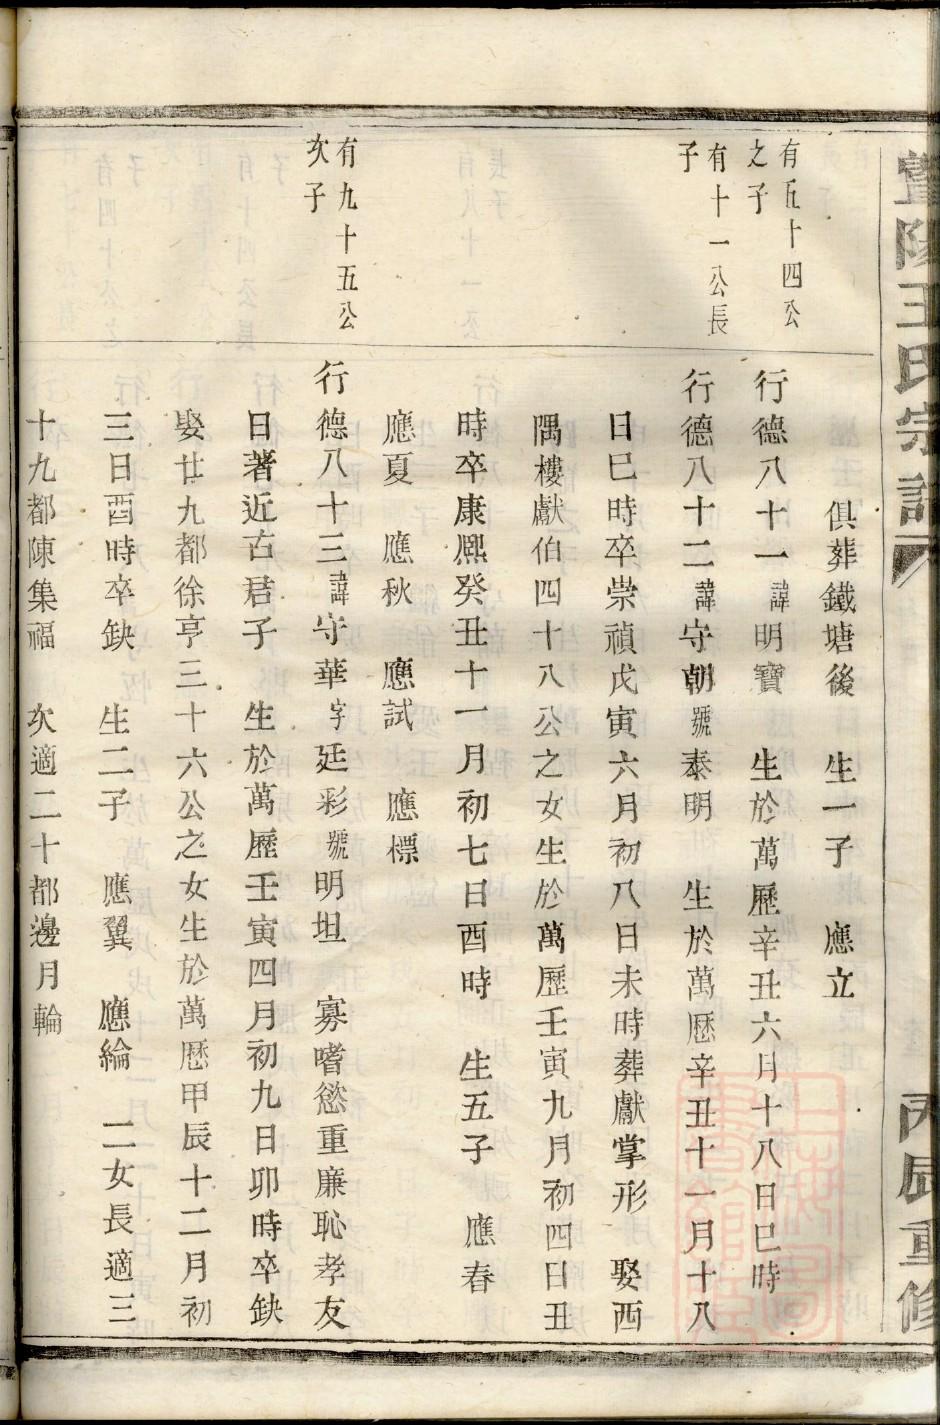 暨陽王氏宗譜
丙辰重修
俱葬鐵塘後　生一子　應立
有五十四公
之子
行德八十一諱明寶　生於萬歷辛丑六月十八日巳時
有十一公長
子
行德八十二諱守朝號泰明　生於萬歷辛丑十一月十八
日巳時卒崇禎戊寅六月初八日未時葬獻掌形　娶西
隅樓獻伯四十八公之女生於萬歷壬寅九月初四日丑
時卒康熈癸丑十一月初七日酉時　生五子　應春
應夏　應秋　應試　應標
有九十五公
次子
行德八十三諱守華字廷彩號明坦　寡嗜慾重廉恥孝友
日著近古君子　生於萬歷壬寅四月初九日卯時卒缺
娶廿九都徐亨三十六公之女生於萬歷甲辰十二月初
三日酉時卒缺　生二子　應翼　應綸　二女長適三
十九都陳集福　次適二十都邊月輪